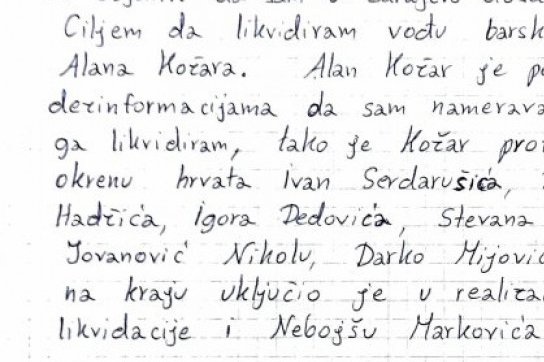 Ciljem da likvidiram vođu barsk
Alana Kožara. Alan Kožar je po
dezinformacijama da sam namerava
ga likvidiram, tako je Kožar pro
okrenu hrvata Ivan Serdarušića,
Hadžića, Igora Dedovića, Stevana
Jovanović Nikolu, Darko Mijovic
na kraju uključio je u realiza
likvidacije i Nebojšu Markovića